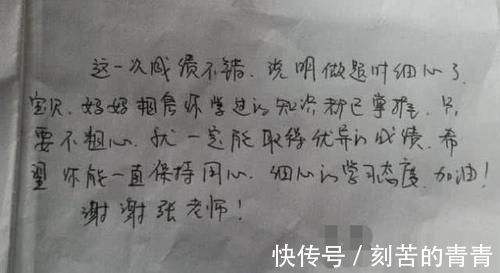 这一次成绩不错.说明做题时细心了.
宝贝.妈妈相信你学过的知识都已掌握.只
要不粗心.就一定能取得优异的成绩.希
望你能一直保持用心.细心的学习态度.加油!
谢谢张老师!
快传号/刻苦的青青